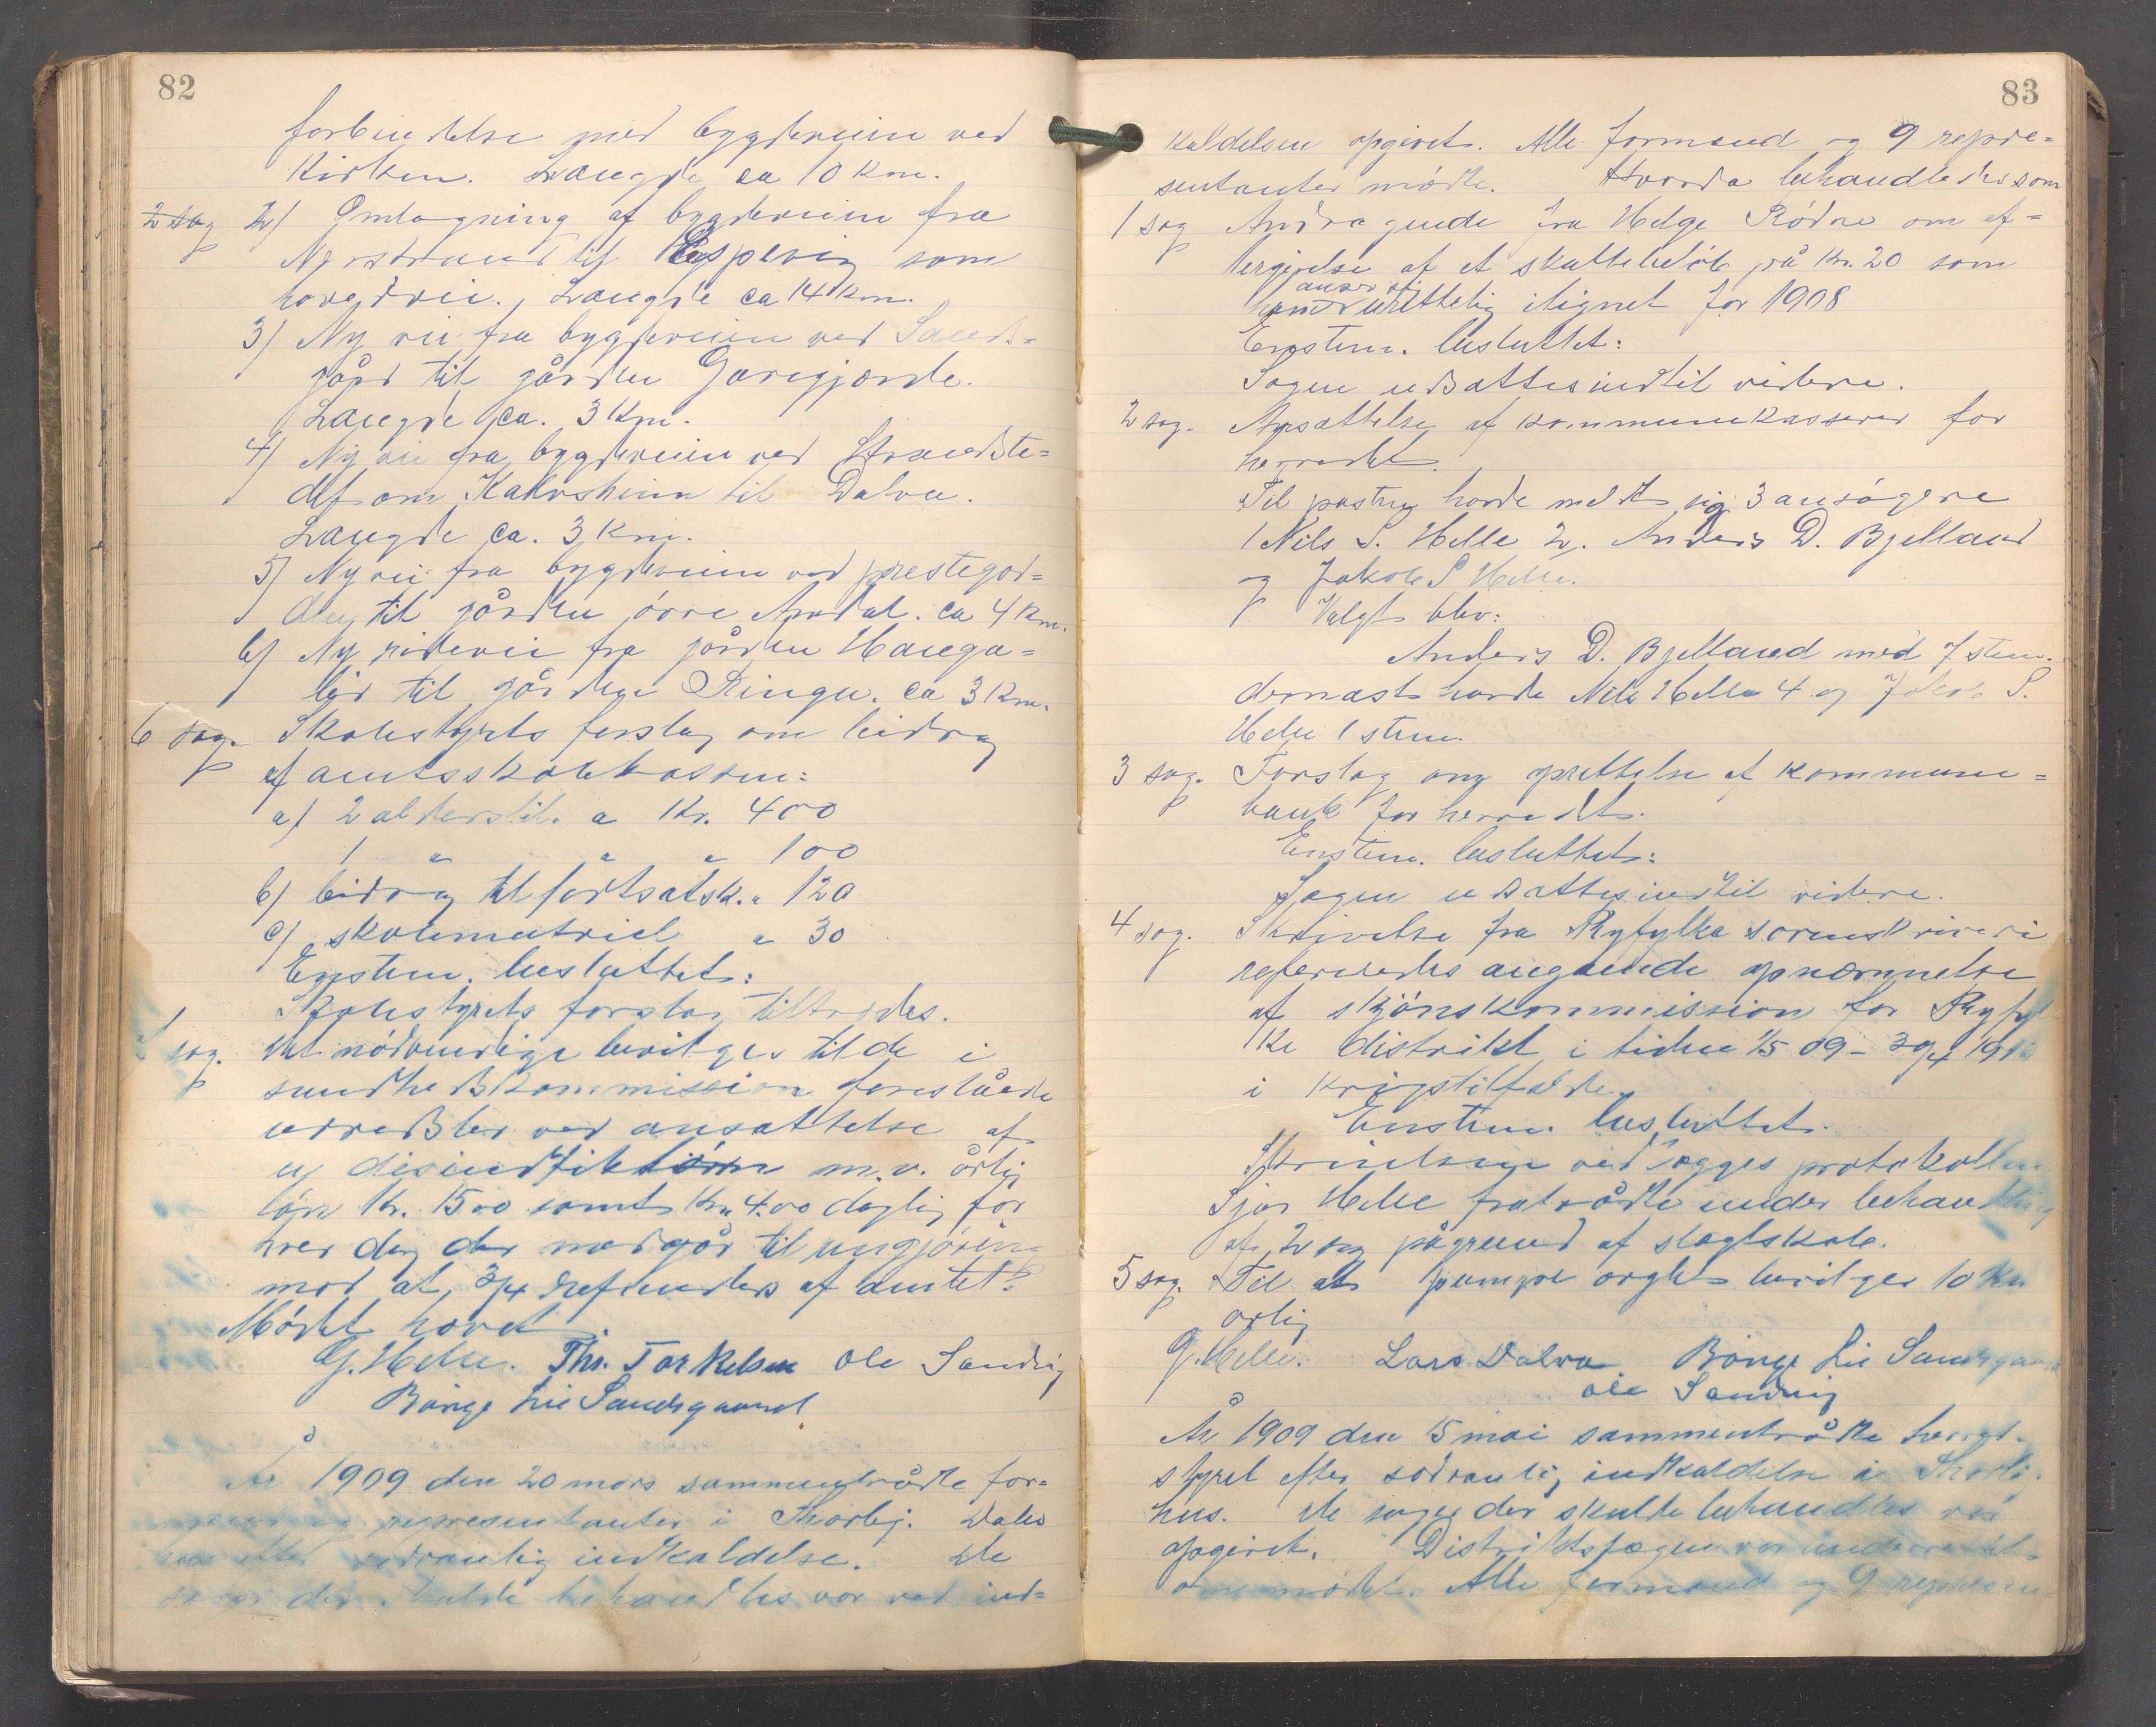 82
forbindelse med bygdeveien ved
Kirken. Længde ca 10 Km.
2 sag 2) Omlægning af bygdeveien fra
Nerstrand til Espevig som
hovedvei. Længde ca 14 Km.
3) Ny vei fra bygdeveien ved Sands=
gård til gården Garegjærde.
Længde ca. 3 Km.
4) Ny vei fra bygdeveien ved Strandste=
det om Kalvsheim til Dalva.
Længde ca. 3 Km.
5) Ny vei fra bygdeveien ved prestegår=
den til gården övre Amdal. ca 4 Km.
6) Ny ridevei fra gården Hauga=
lid til gården Ringen. ca 3 Km.
6 sag. Skolestyrets forslag om bidrag
af amtsskolekassen:
a) 2 alderstil. a Kr. 400
1 " " " 100
b) bidrag til fortsatsk. " 120
c) skolematriel " 30
Enstem. besluttet:
Skolestyrets forslag tiltrædes.
sag. Det nödvendige bevilges til de i
sundhedskommission foreslåede
udredsler ved ansættelse af
en disindfiktörn m.v. årlig
lön Kr. 15.00 samt Kr. 4.00 daglig for
hver dag der medgår til rengjöring
mod at 3/4 refunderes af amtet.
Mödet hævet
G. Helle. Ths. Torkelsen Ole Sandvig
Börge Lie Sandsgaard
År 1909 den 20 mars sammentrådte for=
mænd og representanter i Thorbj. Dales
hus efter sedvanlig indkaldelse. De
sager der skulde behandles var ved ind=
83
kaldelsen opgivet. Alle formænd og 9 repre=
sentanter mödte. Hvorda behandledes som
1 sag Andragende fra Helge Rödne om ef=
tergivelse af et skattebelöb på Kr. 20 som
han anser urettelig ilignet for 1908
Enstem. besluttet:
Sagen udsættes indtil videre.
2 sag. Ansættelse af kommunekasserer for
herredet.
Til posten havde meldt sig 3 ansögere
1 Nils S. Helle 2. Anders D. Bjelland
og Jakob S Helle.
Valgt blev:
Anders D. Bjelland med 7 stem.
dernæst havde Nils Helle 4 og Jakob S.
Helle 1 stem.
3 sag. Forslag om oprettelse af kommune=
bank for herredet.
Enstem. besluttet:
Sagen udsættes indtil videre.
4 sag. Skrivelse fra Ryfylke sorenskriveri
refereredes angående opnævnelse
af skjönskommission for Ryfyl
ke distrikt i tiden 1/5 09 - 30/4 191
i krigstilfælde.
Enstem. besluttet.
Skrivelsen vedlægges protokollen
Sjur Helle fratrådte under behandling
af 2 sag pågrund af slægtskab.
5 sag. Til at pumpe orglet bevilges 10 Kr.
årlig
G. Helle. Lars Dalva Börge Lie Sandsgaard
Ole Sandvig
År 1909 den 15 mai sammentrådte herred-
styret efter sedvanlig indkaldelse i Thorbj.
hus. De sager der skulde behandles var
opgivet. Distriktslægen var
om mödet. Alle formænd og 9 represen-